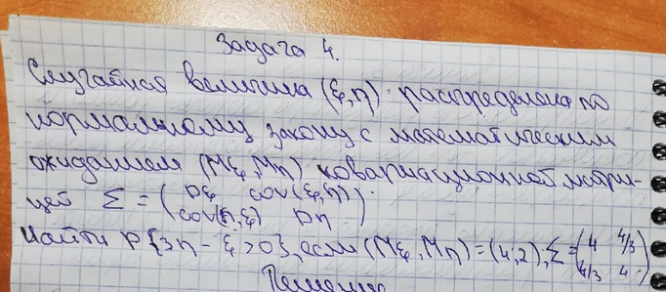 Задача 4.
Случайная величина (ξ,η) распределена по
нормальному закону с математическим
ожиданием (Mξ,Mη) ковариационной матри-
цей Σ=(Dξ cov(ξ,η)
cov(η,ξ) Dη).
Найти P{3η-ξ>0}, если (Mξ,Mη)=(4;2), Σ=(4 4/3
4/3 4)
Решение